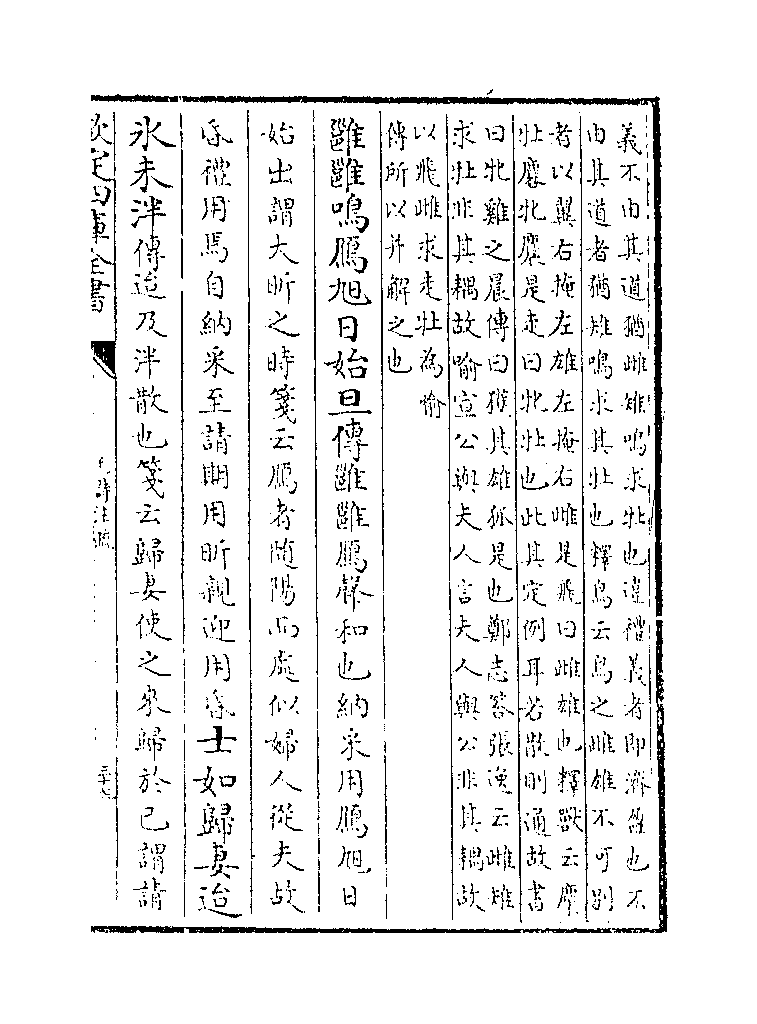 義不由其道猶雌雉鳴求牡也違禮義者即濟盈也不
由其道者猶雉鳴求其牡也釋鳥云鳥之雌雄不可別
者以翼右掩左雄左掩右雌是飛曰雌雄也釋獸云麐
牡麌牝麜是走曰牝牡也此其定例耳若散則通故書
曰牝雞之晨傳曰獲其雄狐是也鄭志答張逸云雌雉
求牡非其耦故喻宣公與夫人言夫人與公非其耦故
以飛雌求走牡為喻
傳所以并解之也
雝雝鳴鴈旭日始旦傳雝雝鴈聲和也納采用鴈旭日
始出謂大昕之時箋云鴈者随陽而處似婦人從夫故
昏禮用焉自納采至請期用昕親迎用昏士如歸妻迨
冰未泮傳迨及泮散也箋云歸妻使之來歸於己謂請
欽定四庫全書
毛詩注疏
三十六